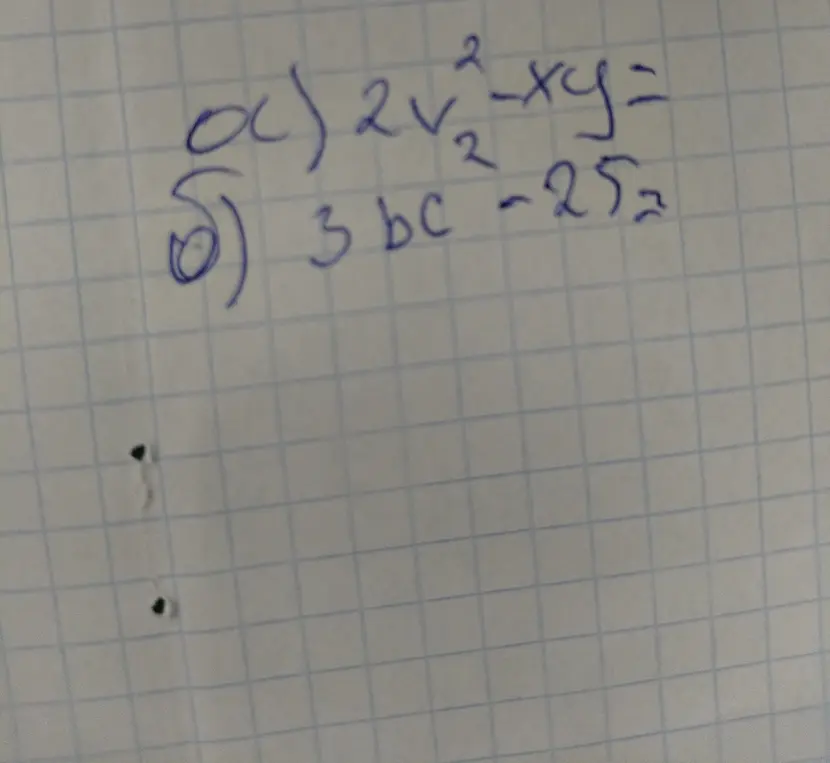 а) 2v² - xy =
б) 3bc² - 25 =